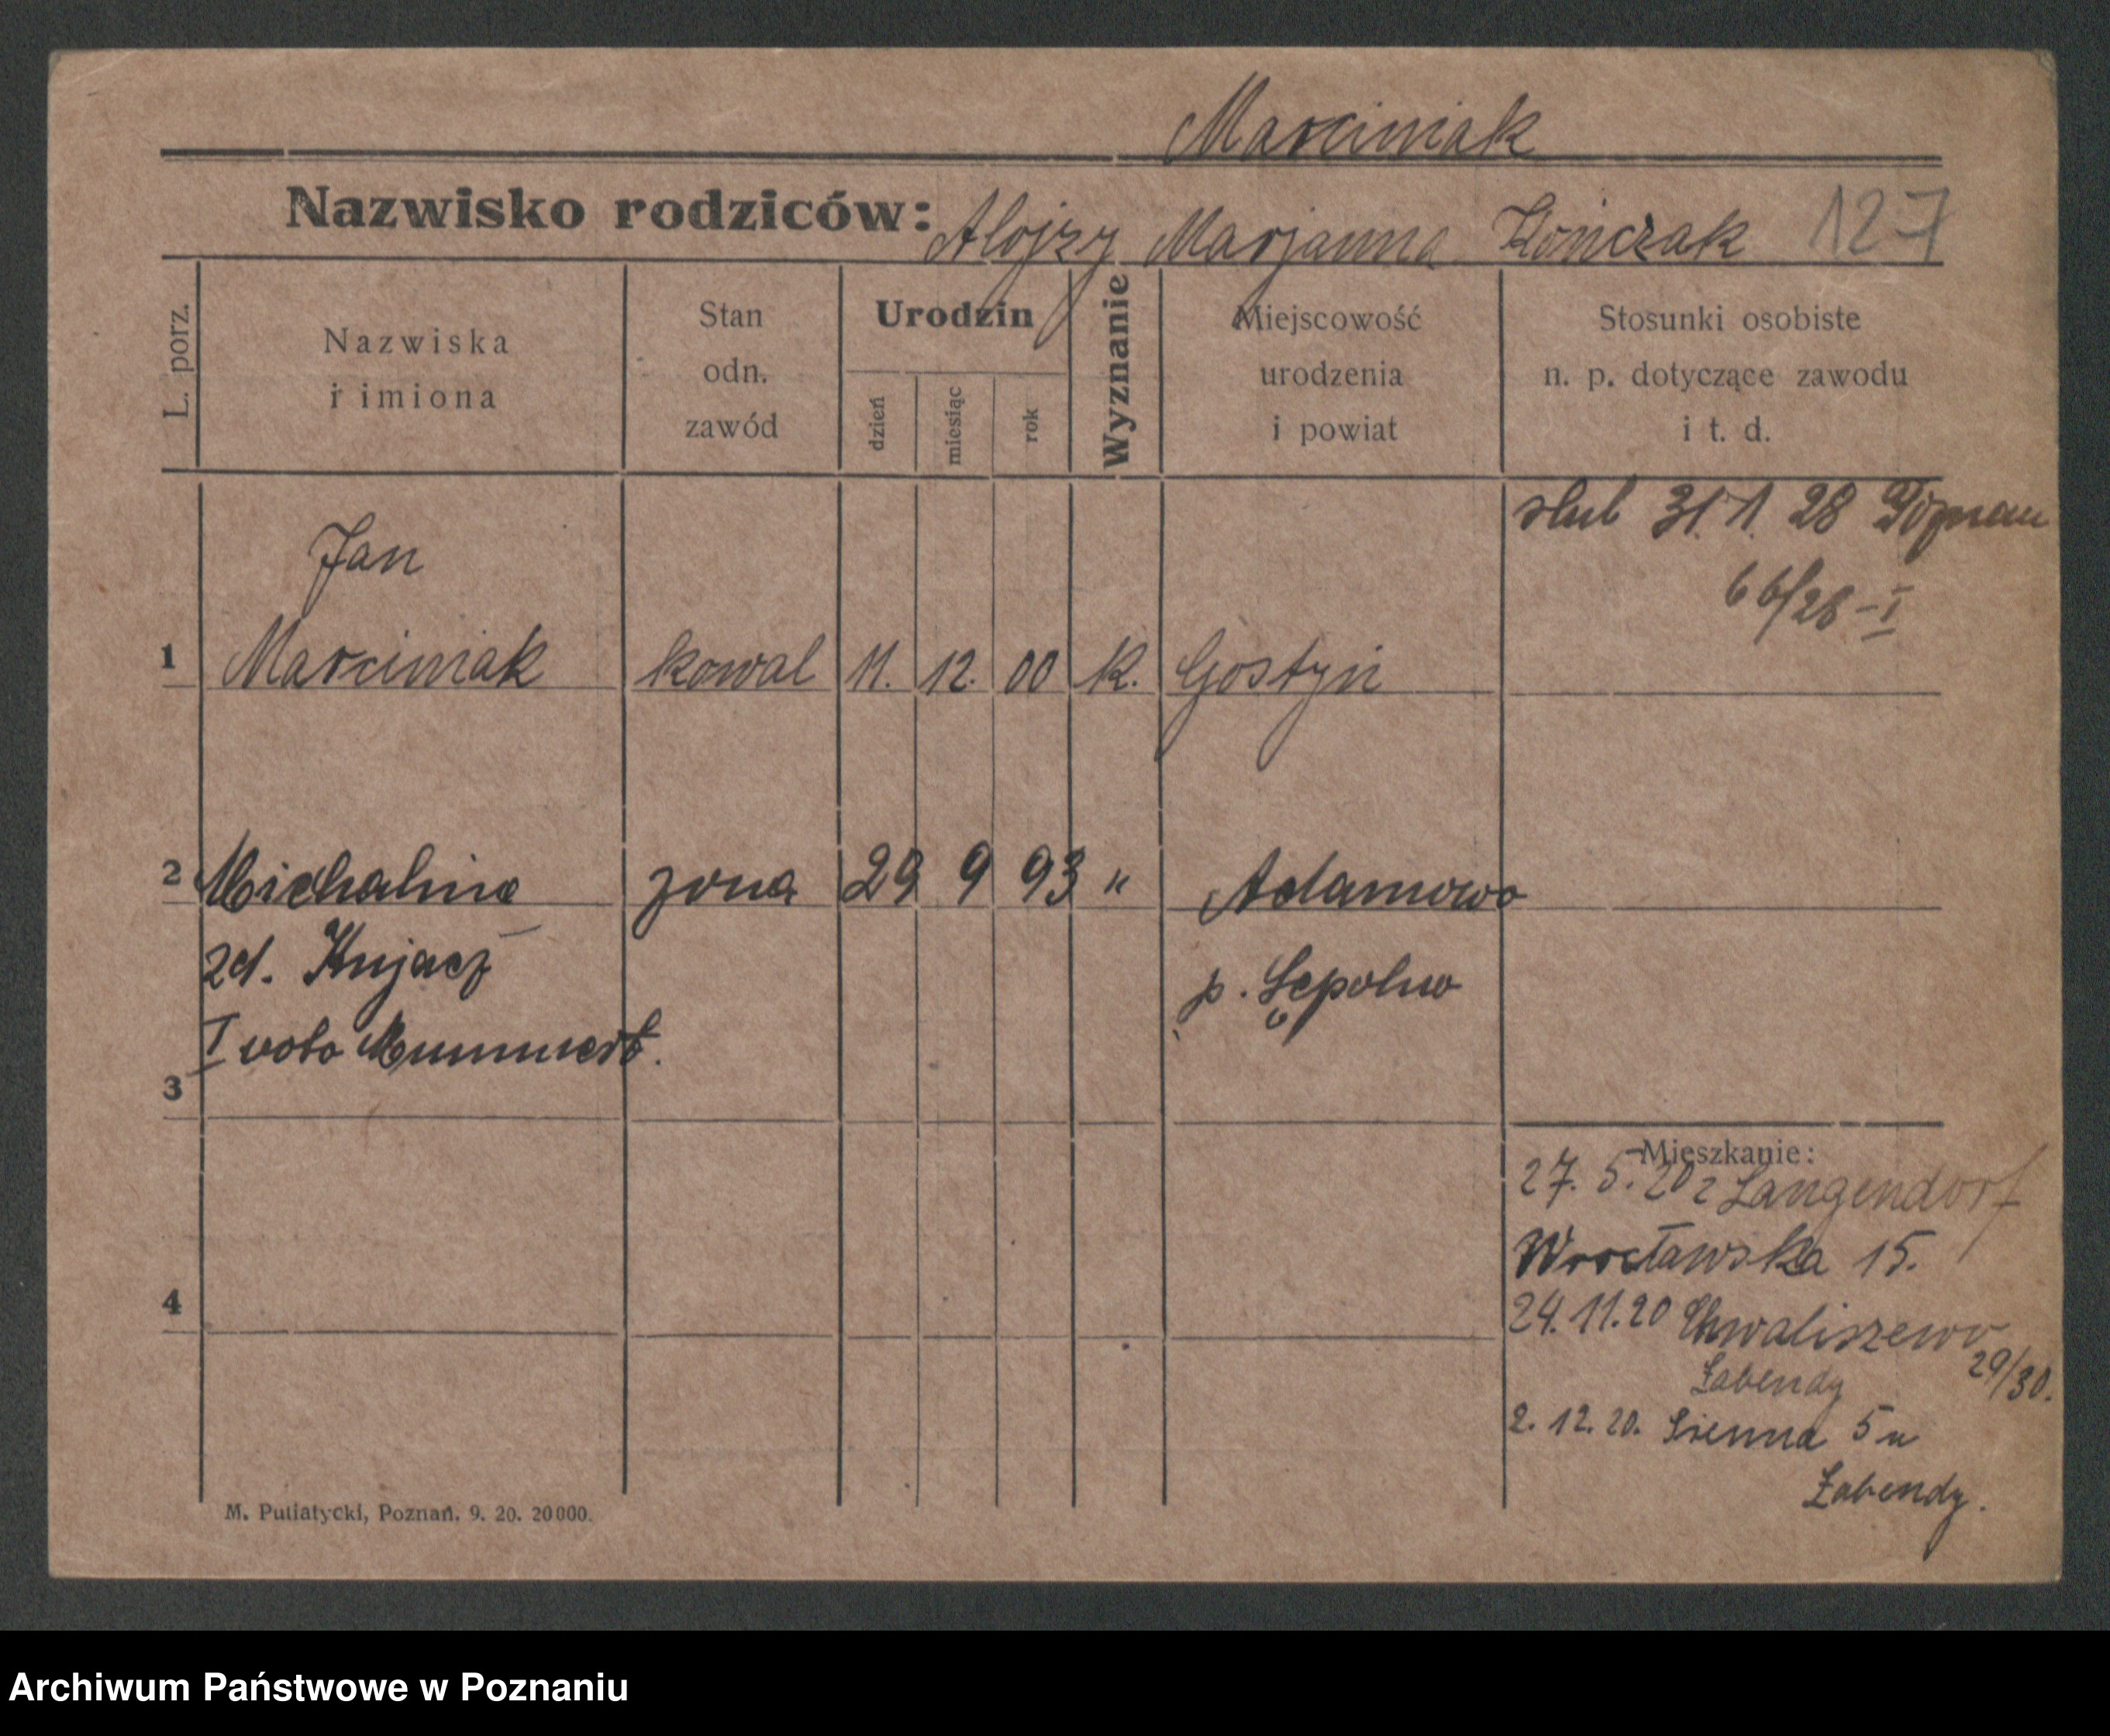 Marciniak
Nazwisko rodziców: Alojzy Marjanna Kończak 127
L. porz.
Nazwiska
i imiona
Stan
odn.
zawód
Urodzin
dzień
miesiąc
rok
Wyznanie
Miejscowość
urodzenia
i powiat
Stosunki osobiste
n. p. dotyczące zawodu
i t. d.
slub 31. 1. 28 Poznan
66/28 - I
Jan
1 Marciniak kowal 11. 12. 00 K. Gostyń
2 Michalina zona 29 9 93 " Adamowo
zd. Kujacz p. Sępolno
I voto Mummert.
3
Mieszkanie:
27. 5. 20 z Langendorf
Wrocławska 15.
4
24. 11. 20 Chwaliszewo
29/30.
Łabendy
2. 12. 20. Sienna 5 u
Łabendy.
M. Putiatycki, Poznań. 9. 20. 20000.
Archiwum Państwowe w Poznaniu